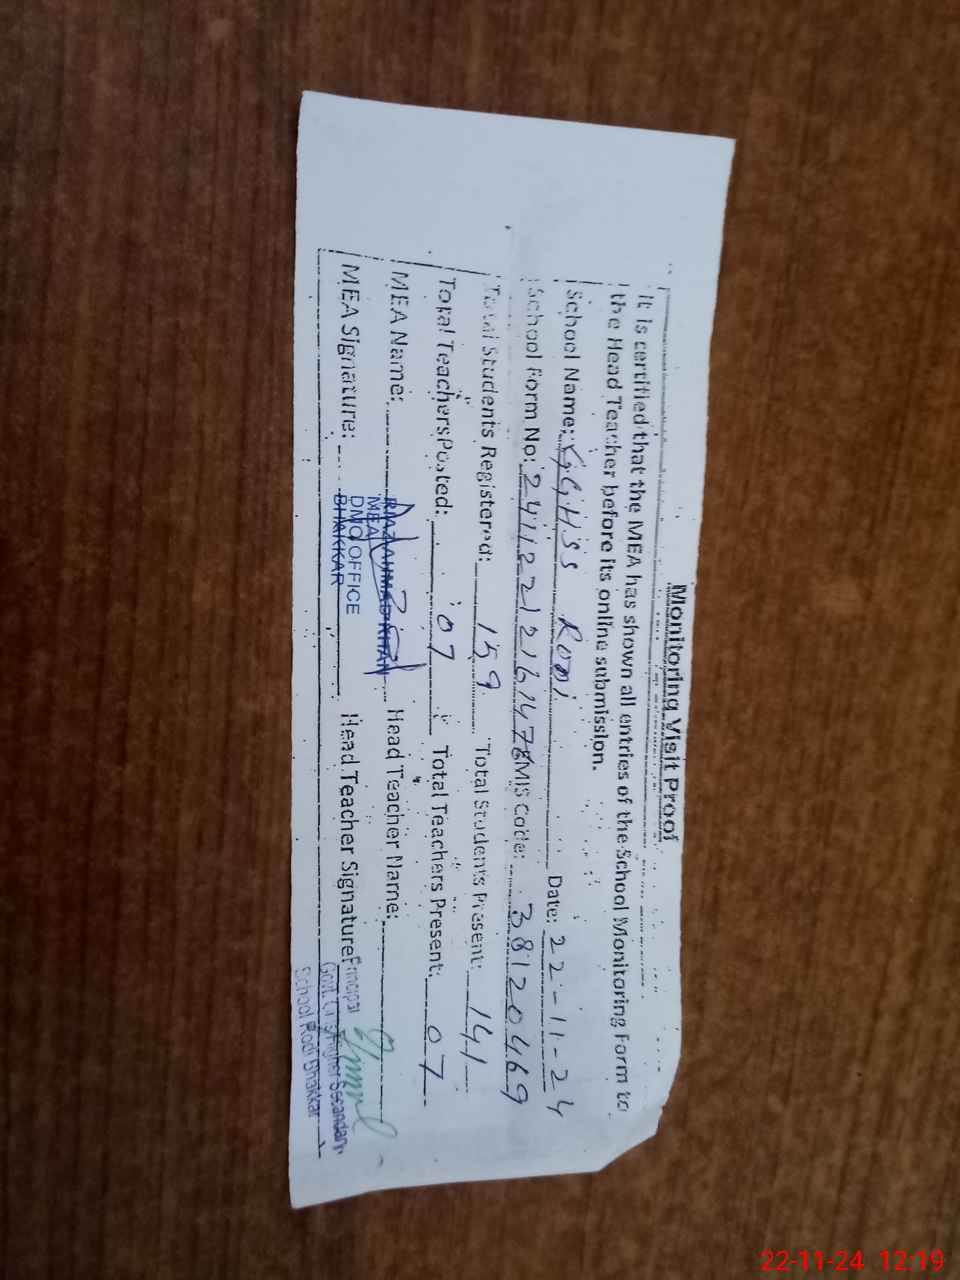 Monitoring Visit Proof
It is certified that the MEA has shown all entries of the School Monitoring Form to
the Head Teacher before its online submission.
School Name: GGHSS Rodi Date: 22-11-24
School Form No: EMIS Code: 38120469
Total Students Registered: 159 Total Students Present: 141
Total Teachers Posted: 07 Total Teachers Present: 07
MEA Name: RIAZ AHMAD KHAN Head Teacher Name:
MEA
DMO OFFICE
BHAKKAR
MEA Signature: Head Teacher Signature:
Principal
Govt. Girls Higher Secondary
School Rodi Bhakkar
22-11-24 12:19